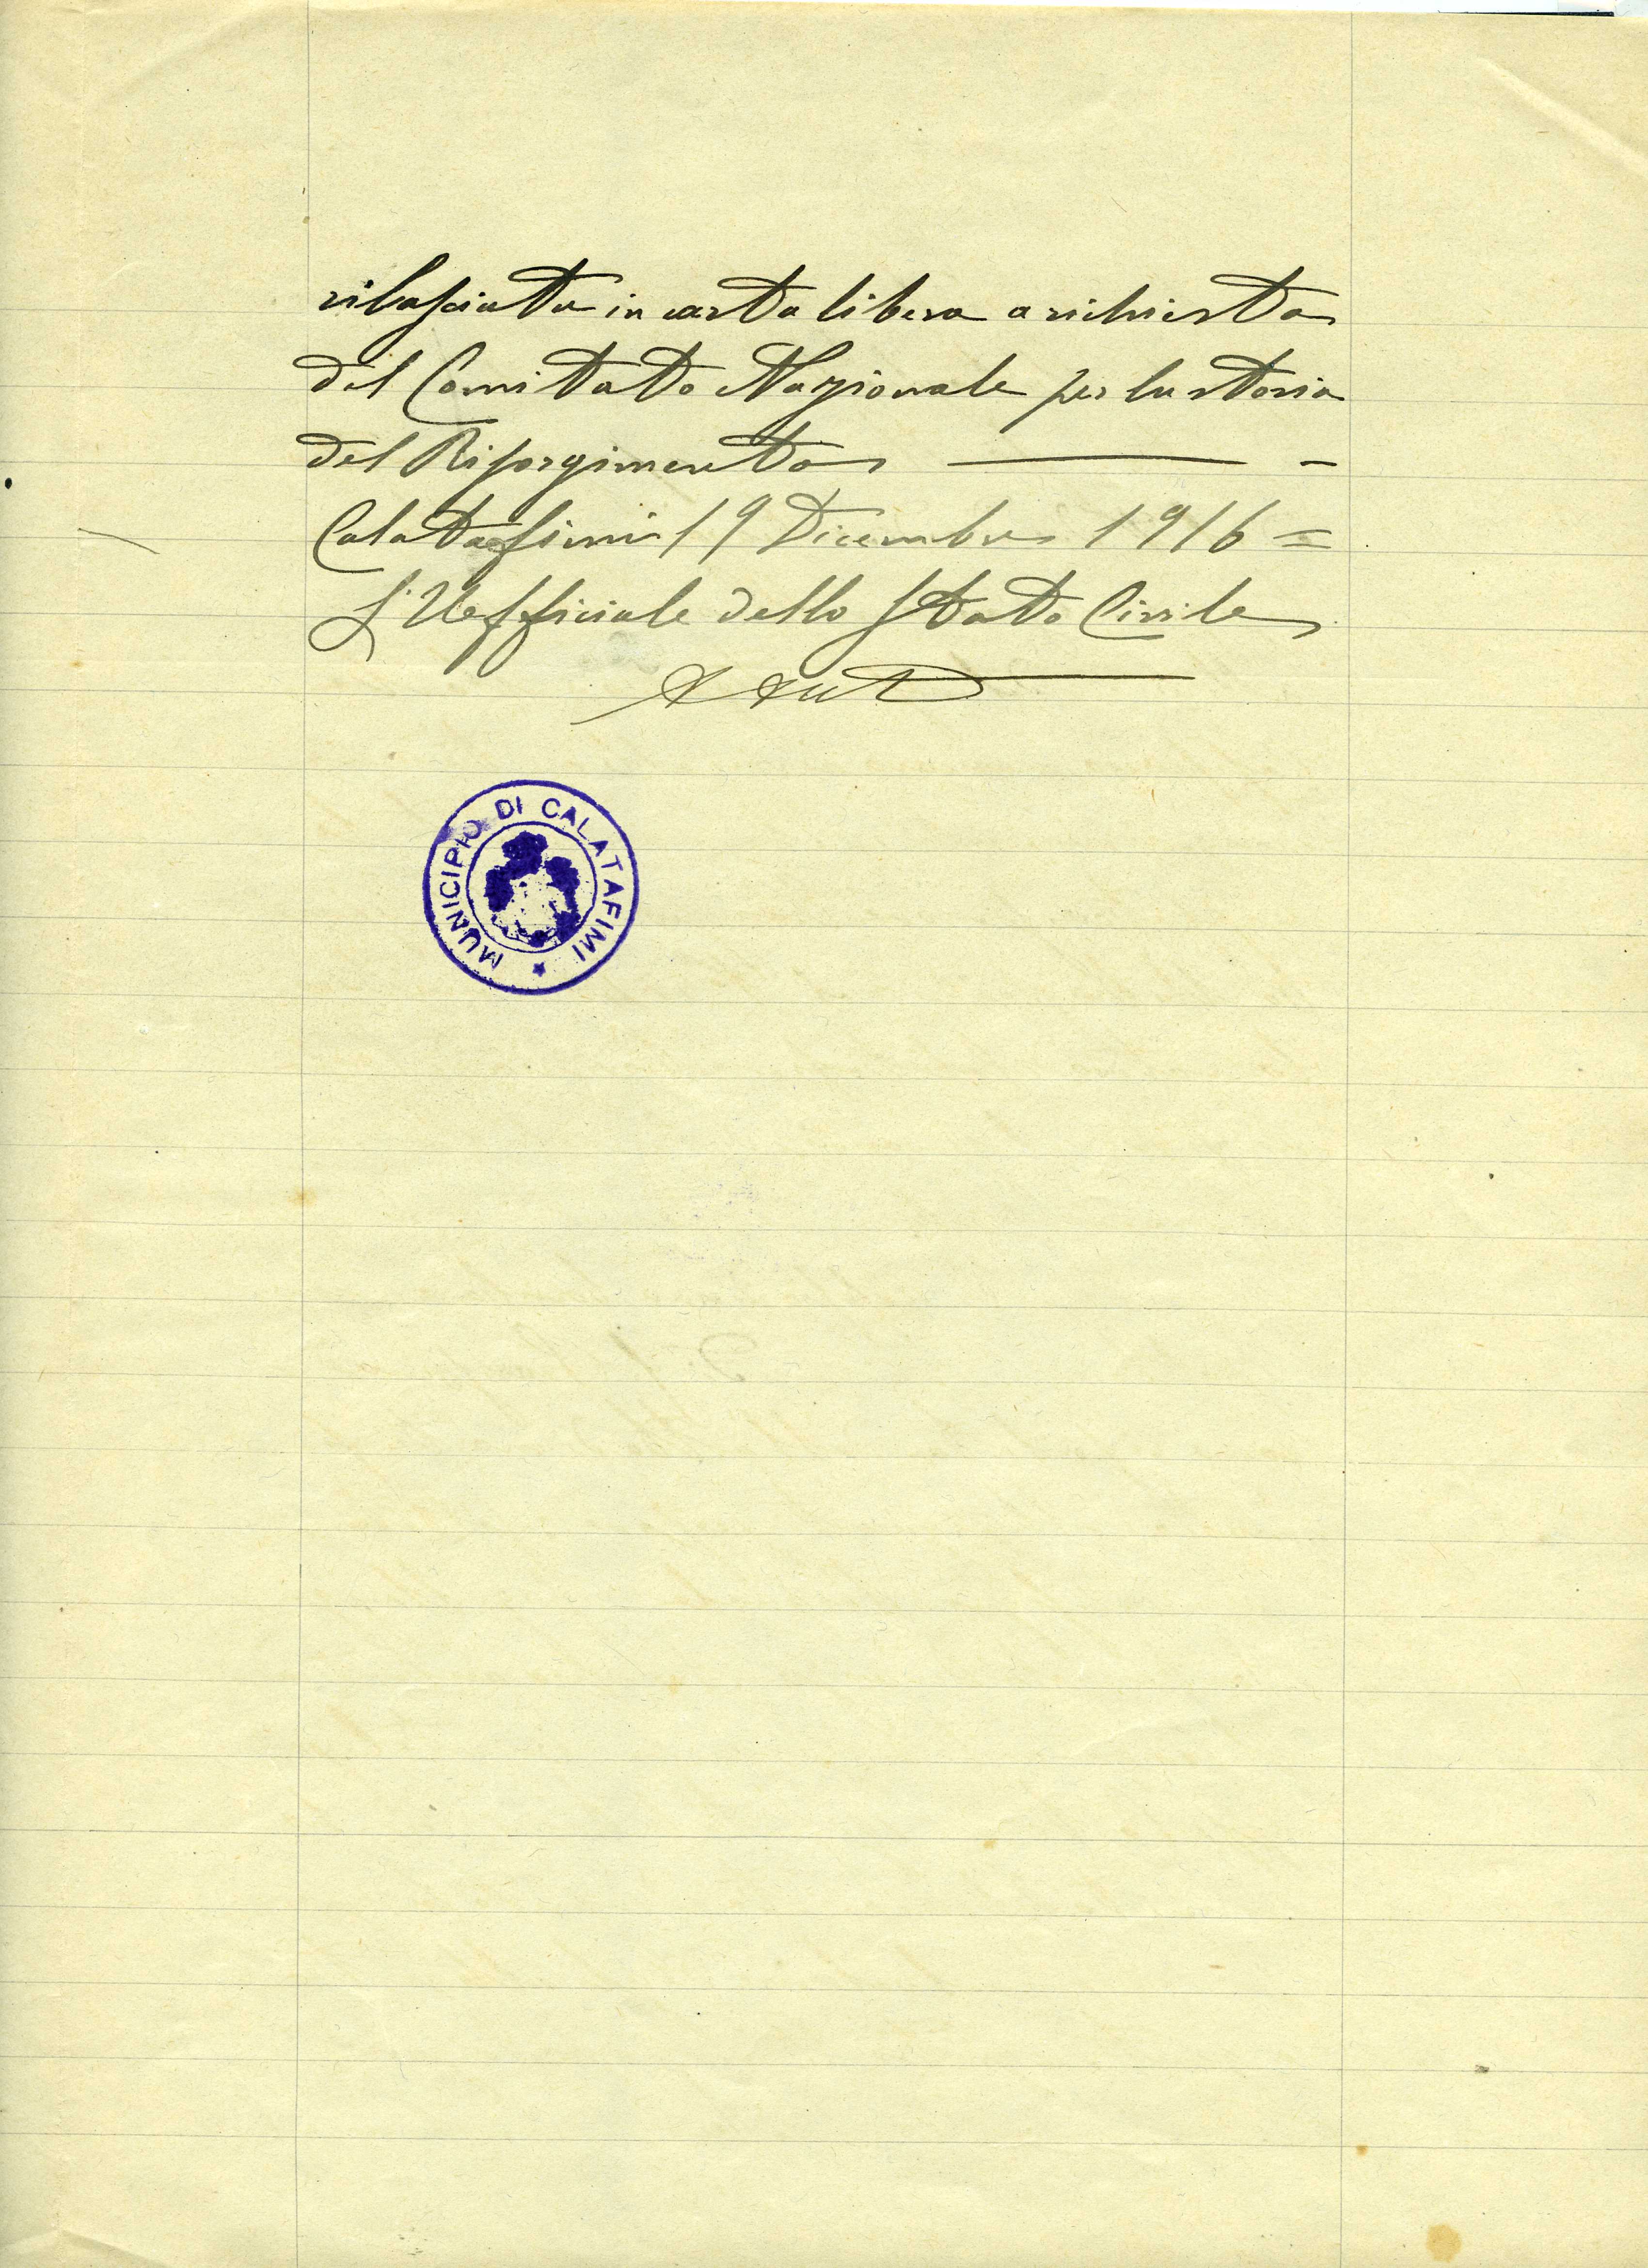 rilasciata in carta libera a richiesta
del Comitato Nazionale per la storia
del Risorgimento —— -
Calatafimi 19 Dicembre 1916 =
L'Ufficiale dello Stato Civile
MUNICIPIO DI CALATAFIMI